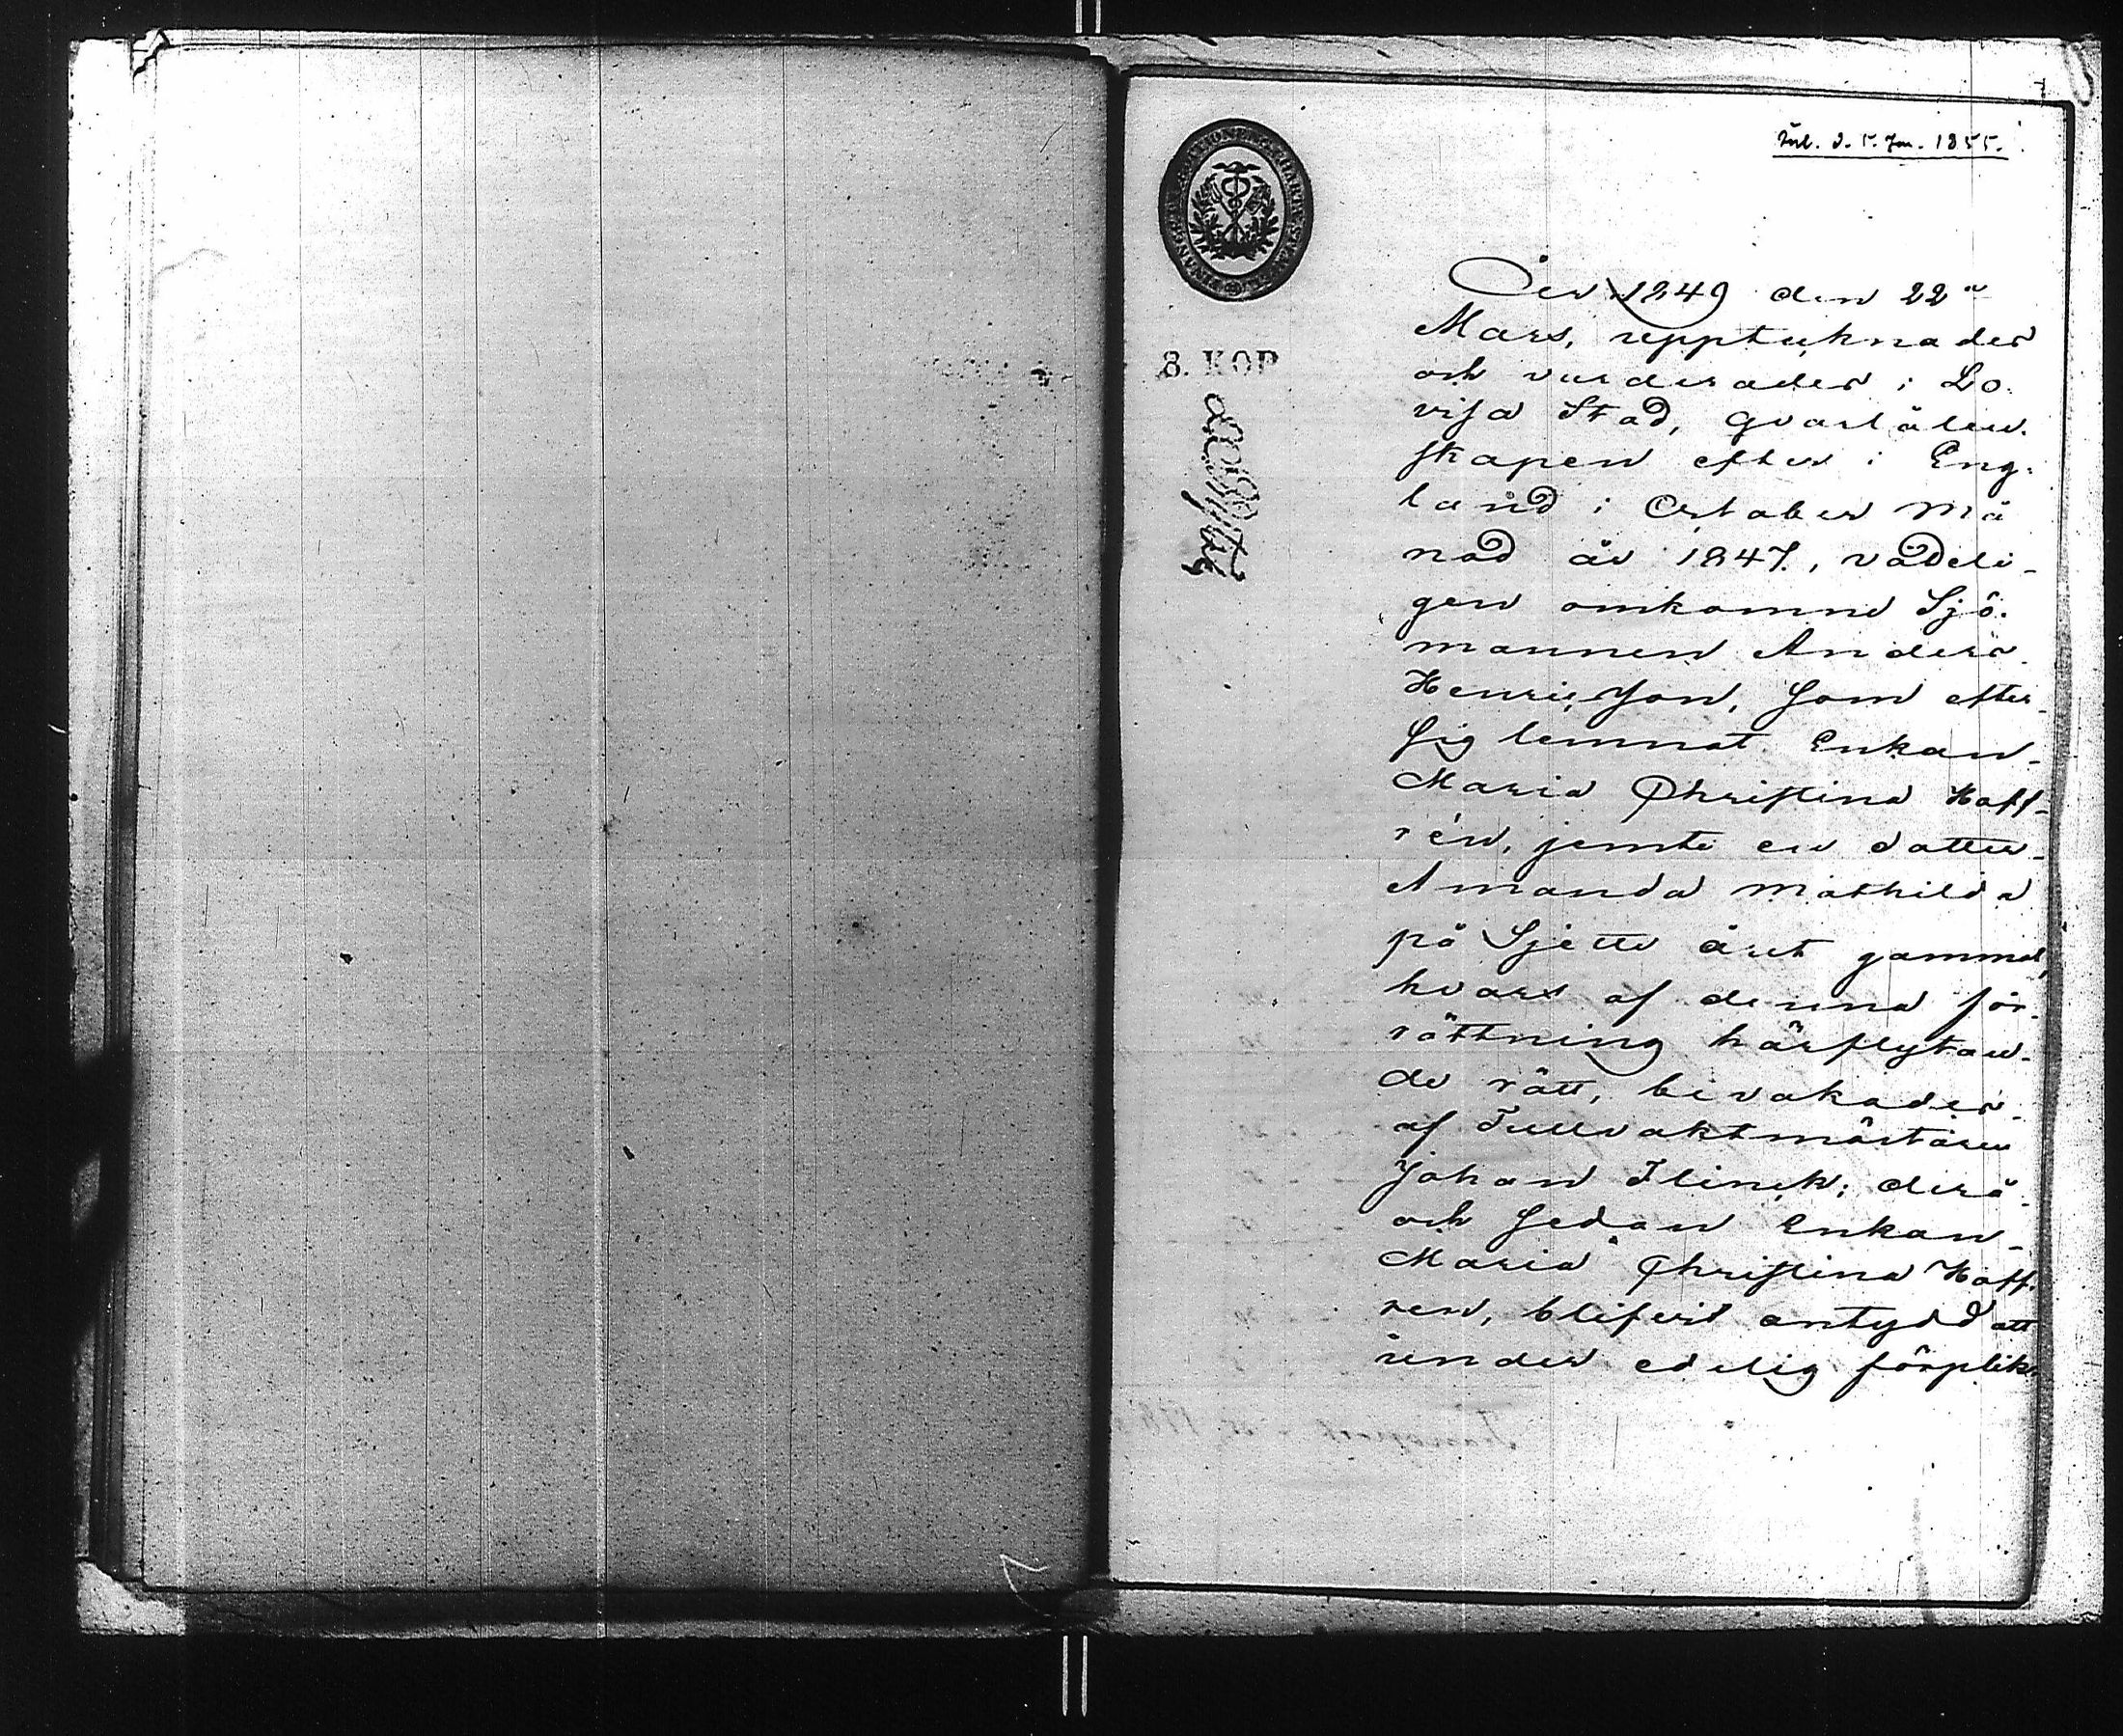 Inl. d. 5. Jan. 1855.
8. KOP
År 1849 den 22a
Mars, upptecknades
och värderades i Lo-
visa Stad, qvarlåten-
skapen efter i Eng-
land i October må
nad år 1847, vådeli-
gen omkomne Sjö-
mannen Anders
Henricsson, som efter
sig lemnat Enkan
Maria Christina Haff-
rén, jemte en dotter
Amanda Mathilda
på Sjette året gammal,
hvars af denna för-
rättning härflytan-
de rätt, bevakades
af Tullvaktmästaren
Johan Flinck; derå
och sedan Enkan
Maria Christina Haff-
ren, blifvit antydd att
under edelig förplik-